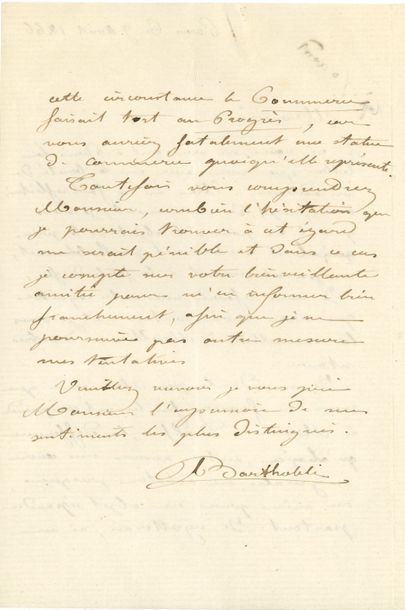 cette circonstance le Commerce
faisait tort au Progrès, car
vous auriez fatalement une statue
de commerce quoiqu'elle représente.
Toutefois vous comprendrez
Monsieur, combien l'hésitation que
je pourrais trouver à cet égard
me serait pénible et dans ce cas
je compte sur votre bienveillante
amitié pour m'en informer bien
franchement, afin que je ne
poursuive pas outre mesure
mes tentatives
Veuillez recevoir je vous prie
Monsieur l'expression de mes
sentiments les plus distingués.
ABartholdi